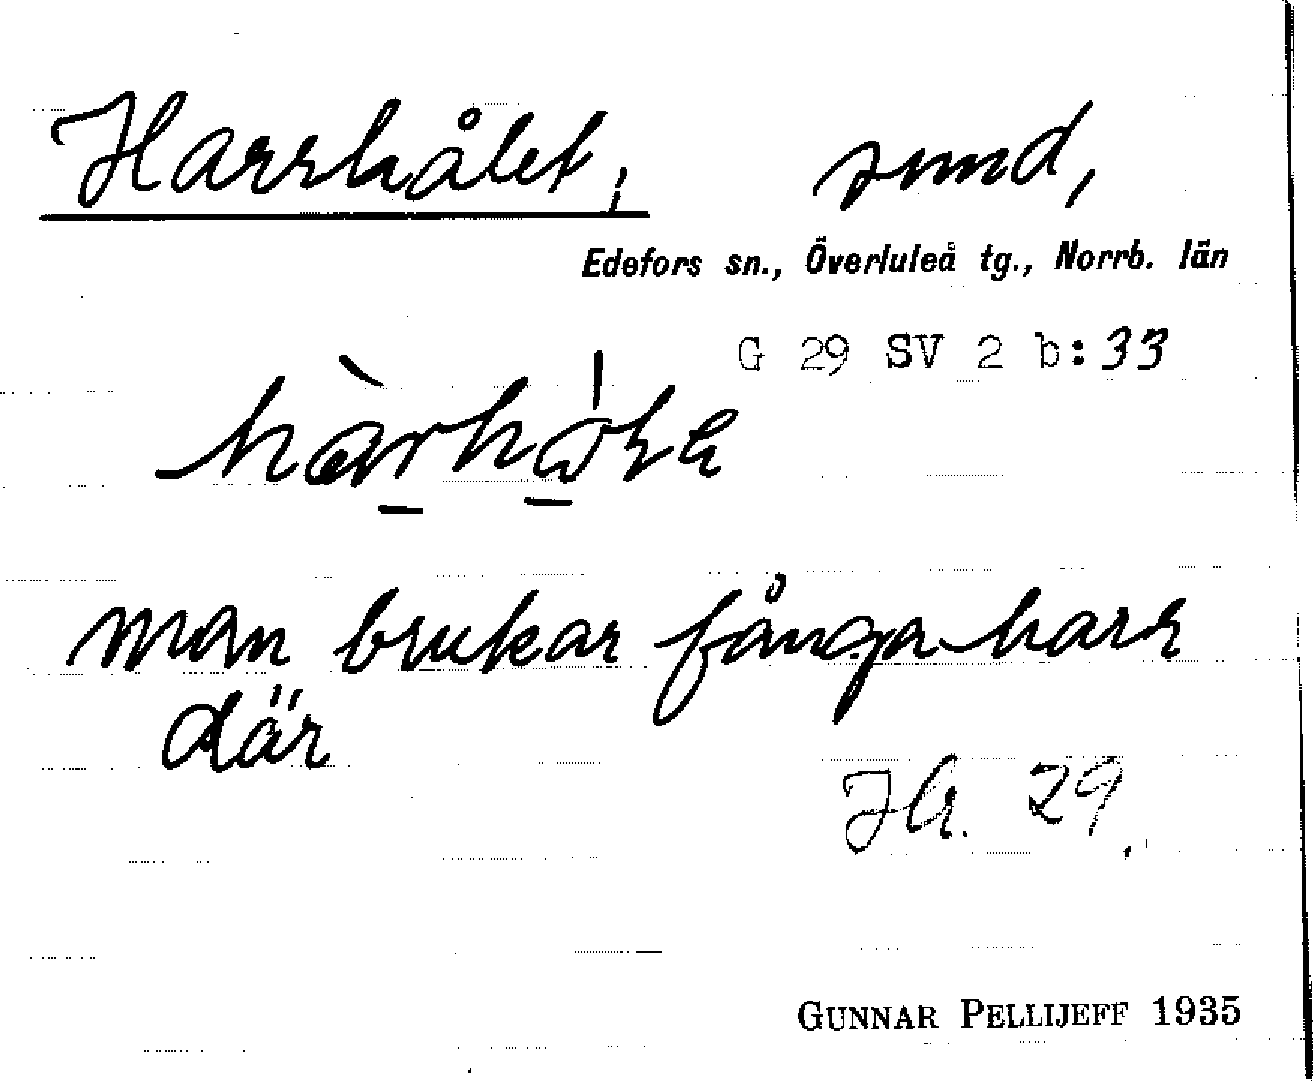 Harrhålet, sund,
Edefors sn., Överluleå tg., Norrb. län
G 29 SV 2 b:33
man brukar fånga harr
där
JG. 29.
GUNNAR PELLIJEFF 1935